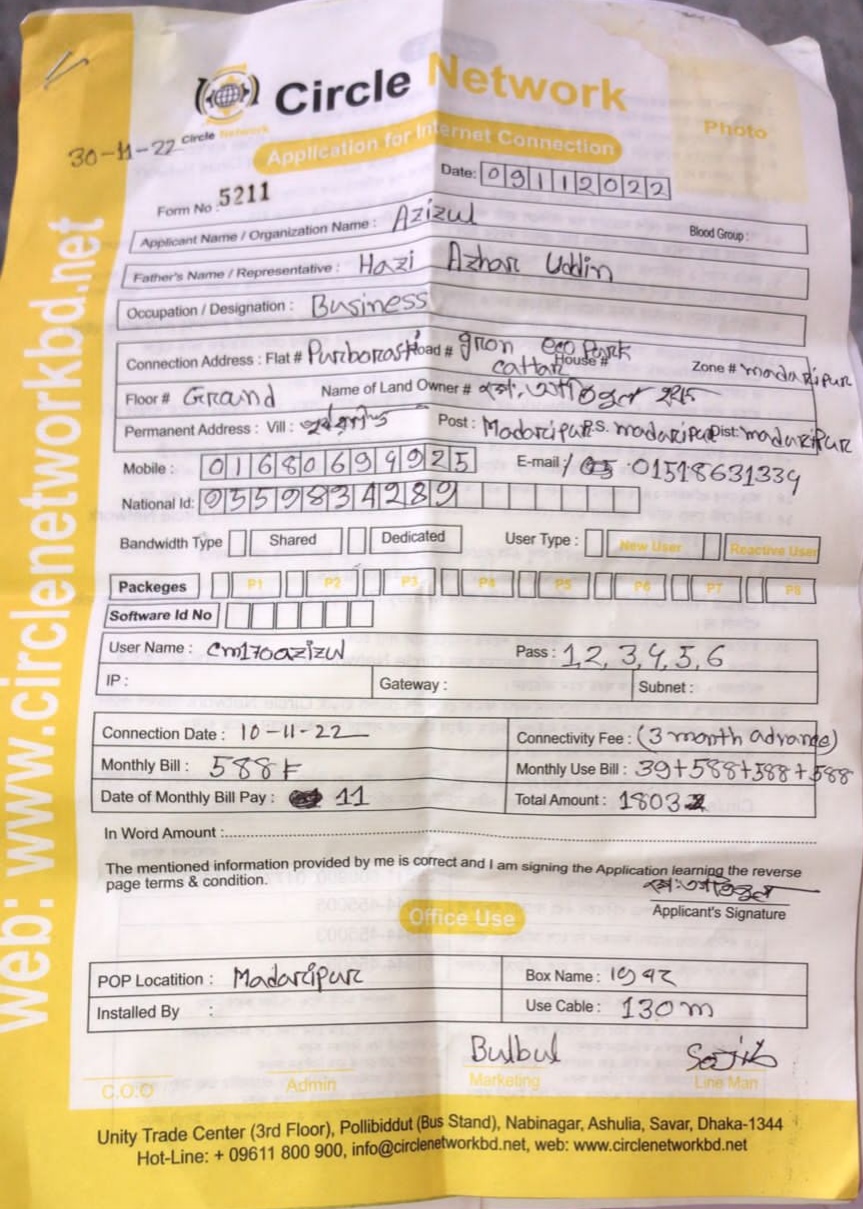 Circle Network
Circle Network
Photo
30-11-22
Application for Internet Connection
Date: 09112022
Form No. 5211
Applicant Name / Organization Name : Azizul Blood Group :
Father's Name / Representative : Hazi Azhar Uddin
Occupation / Designation : Business
Connection Address : Flat # Road # eco Park House # Zone # madaripur
Floor # Name of Land Owner #
Permanent Address : Vill : Post : Madaripur P.S. madaripur Dist: madaripur
Mobile : 01680694925 E-mail : / 01518631339
National Id: 9559834289
Bandwidth Type Shared Dedicated User Type : New User Reactive User
Packeges P1 P2 P3 P4 P5 P6 P7 P8
Software Id No
User Name : cm170azizul Pass : 1,2,3,4,5,6
IP : Gateway : Subnet :
Connection Date : 10-11-22 Connectivity Fee : (3 month advance)
Monthly Bill : 588 Monthly Use Bill : 39+588+588+588
Date of Monthly Bill Pay : 11 Total Amount : 1803
In Word Amount :
The mentioned information provided by me is correct and I am signing the Application learning the reverse
page terms & condition.
Applicant's Signature
Office Use
POP Locatition : Madaripur Box Name :
Installed By : Use Cable : 130 m
Bulbul Sajib
C.O.O Admin Marketing Line Man
Unity Trade Center (3rd Floor), Pollibiddut (Bus Stand), Nabinagar, Ashulia, Savar, Dhaka-1344
Hot-Line: + 09611 800 900, info@circlenetworkbd.net, web: www.circlenetworkbd.net
web: www.circlenetworkbd.net